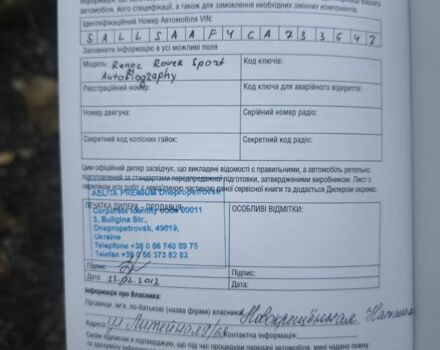 автомобіля, його специфікації, а також для замовлення необхідних змінних компонентів.
Ідентифікаційний Номер Автомобіля VIN:
S A L L S A A F 4 C A 2 3 3 5 4 2
Заповнити інформацію в усі можливі поля
Модель: Range Rover Sport
Autobiography
Код ключів:
Реєстраційний номер:
Код ключа для аварійного відкриття:
Номер двигуна:
Серійний номер радіо:
Секретний код колісних гайок:
Секретний код радіо:
Цим офіційний дилер засвідчує, що викладені відомості є правильними, а автомобіль ретельно
підготовлений за стандартами передпродажної підготовки, затвердженими виробником. Лист з
переліком усіх робіт є невід'ємною частиною даної сервісної книги та додається Дилером окремо.
AELITA PREMIUM Dnepropetrovsk
ПЕЧАТКА ДИЛЕРА – ПРОДАВЦЯ:
Corporate identity code 00011
3, Buligina Str.,
Dnepropetrovsk, 49019,
Ukraine
Telephone +38 0 56 740 89 75
Telefax +38 0 56 373 82 82
ОСОБЛИВІ ВІДМІТКИ:
Підпис:
Дата: 2012
Підпис:
Дата:
Інформація про Власника:
Прізвище, ім'я, по-батькові (назва фірми) власника:
Адреса: ул
Контактна інформація:
Своїм підписом я підтверджую, що під час процедури передачі автомобіля, мені надано повну